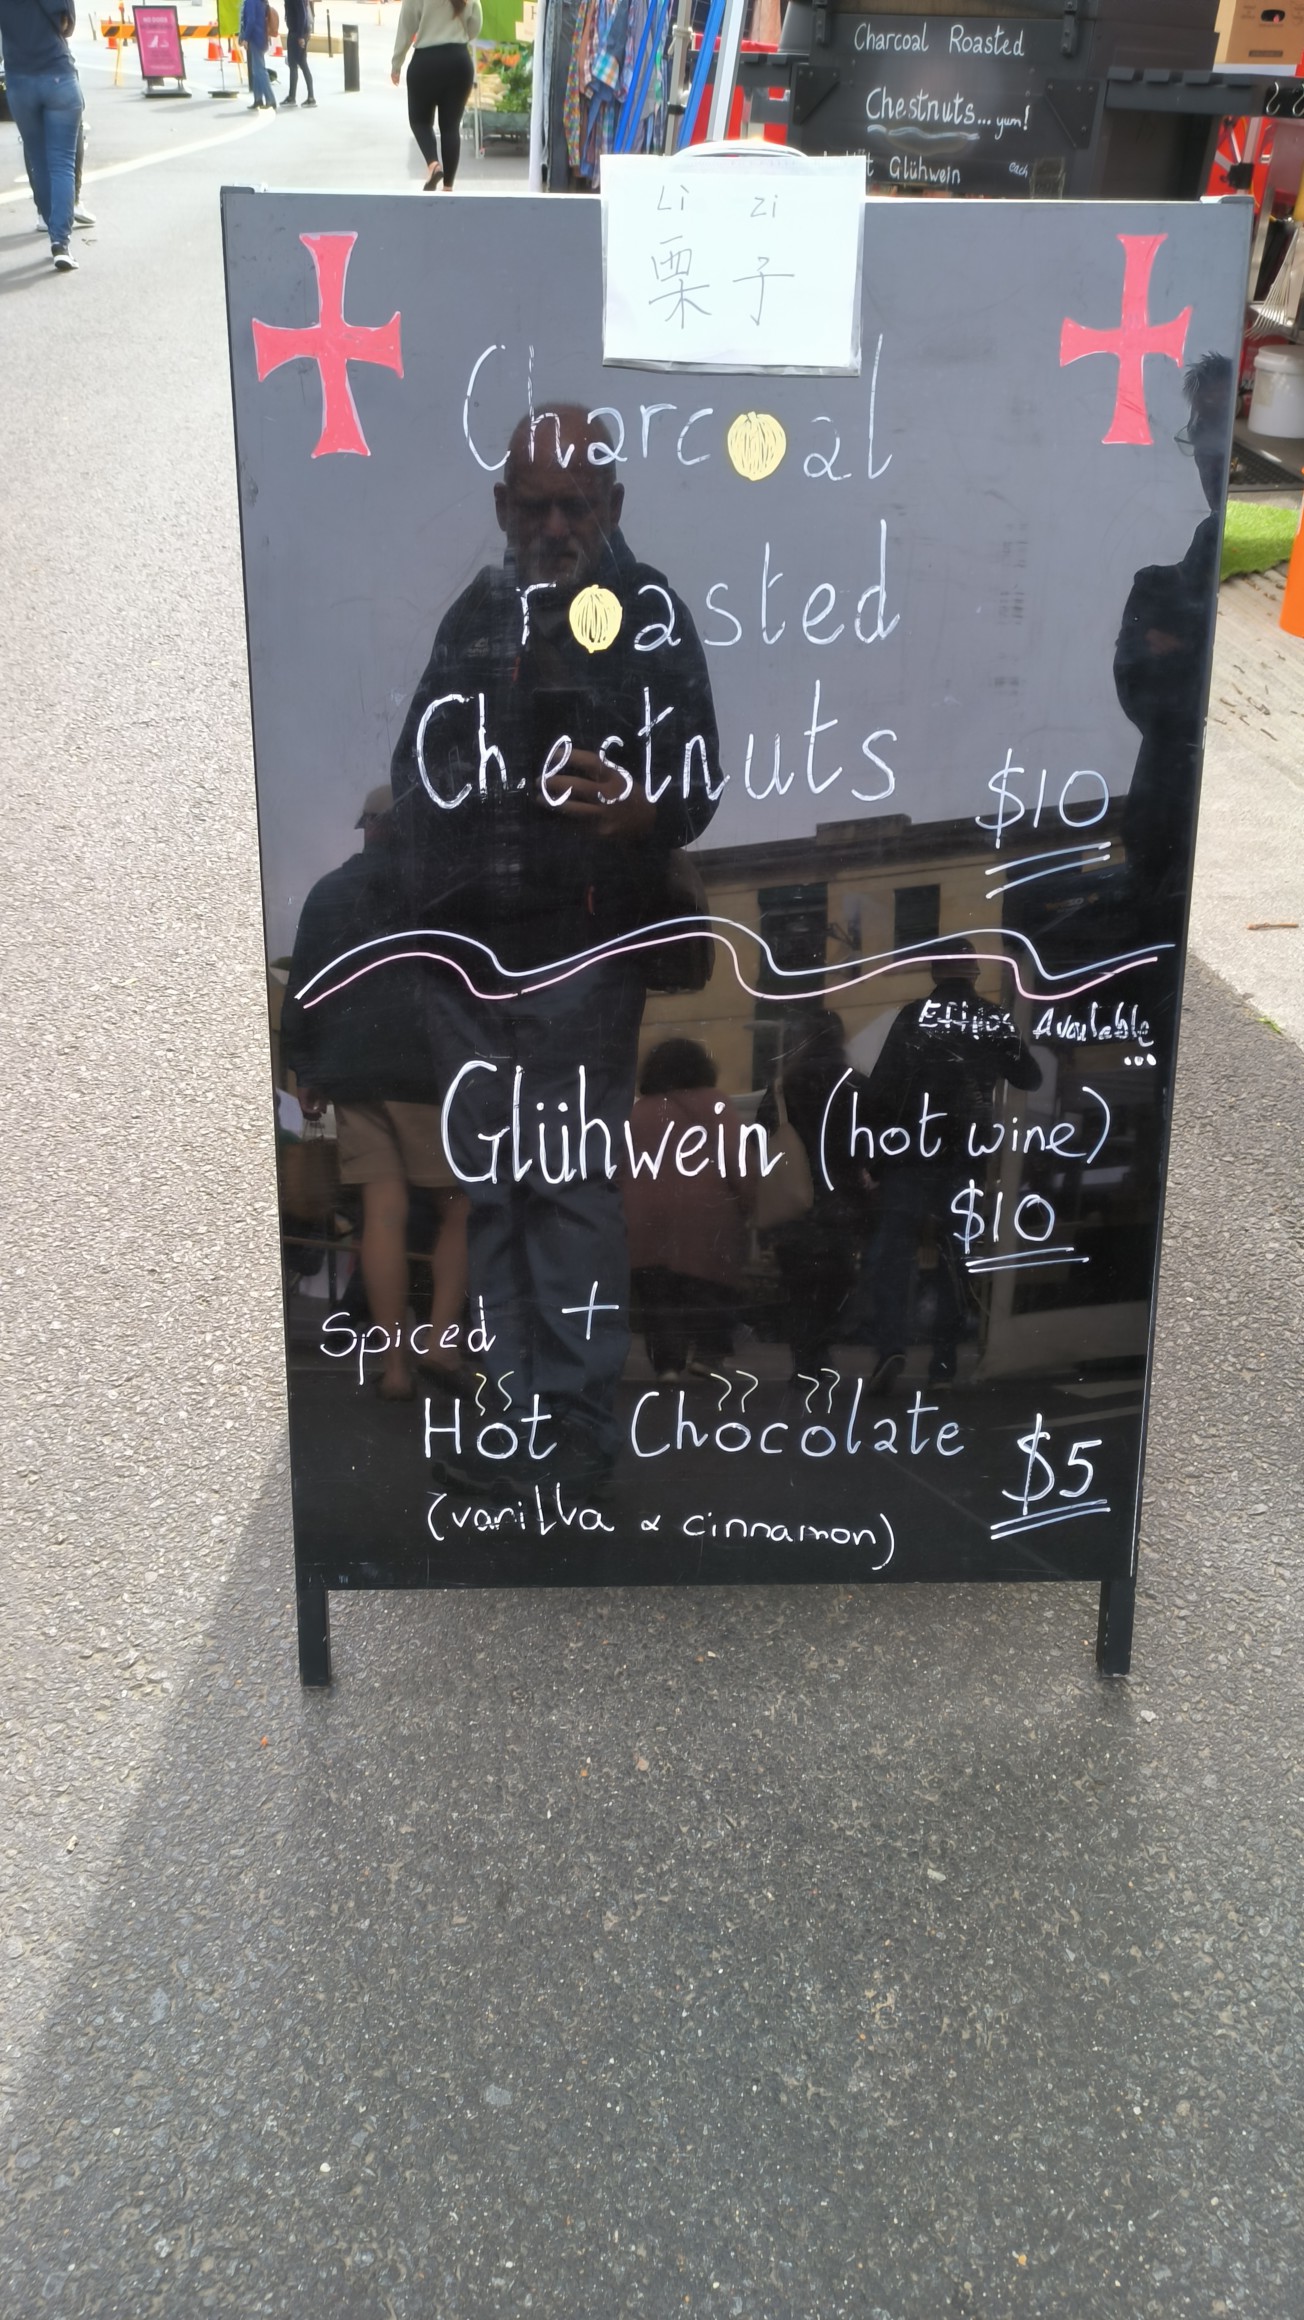 Charcoal Roasted
Chestnuts... yum!
Glühwein
each
Li Zi
栗子
Charcoal
roasted
Chestnuts
$10
Available
...
Glühwein (hot wine)
$10
Spiced +
Hot Chocolate $5
(vanilla & cinnamon)